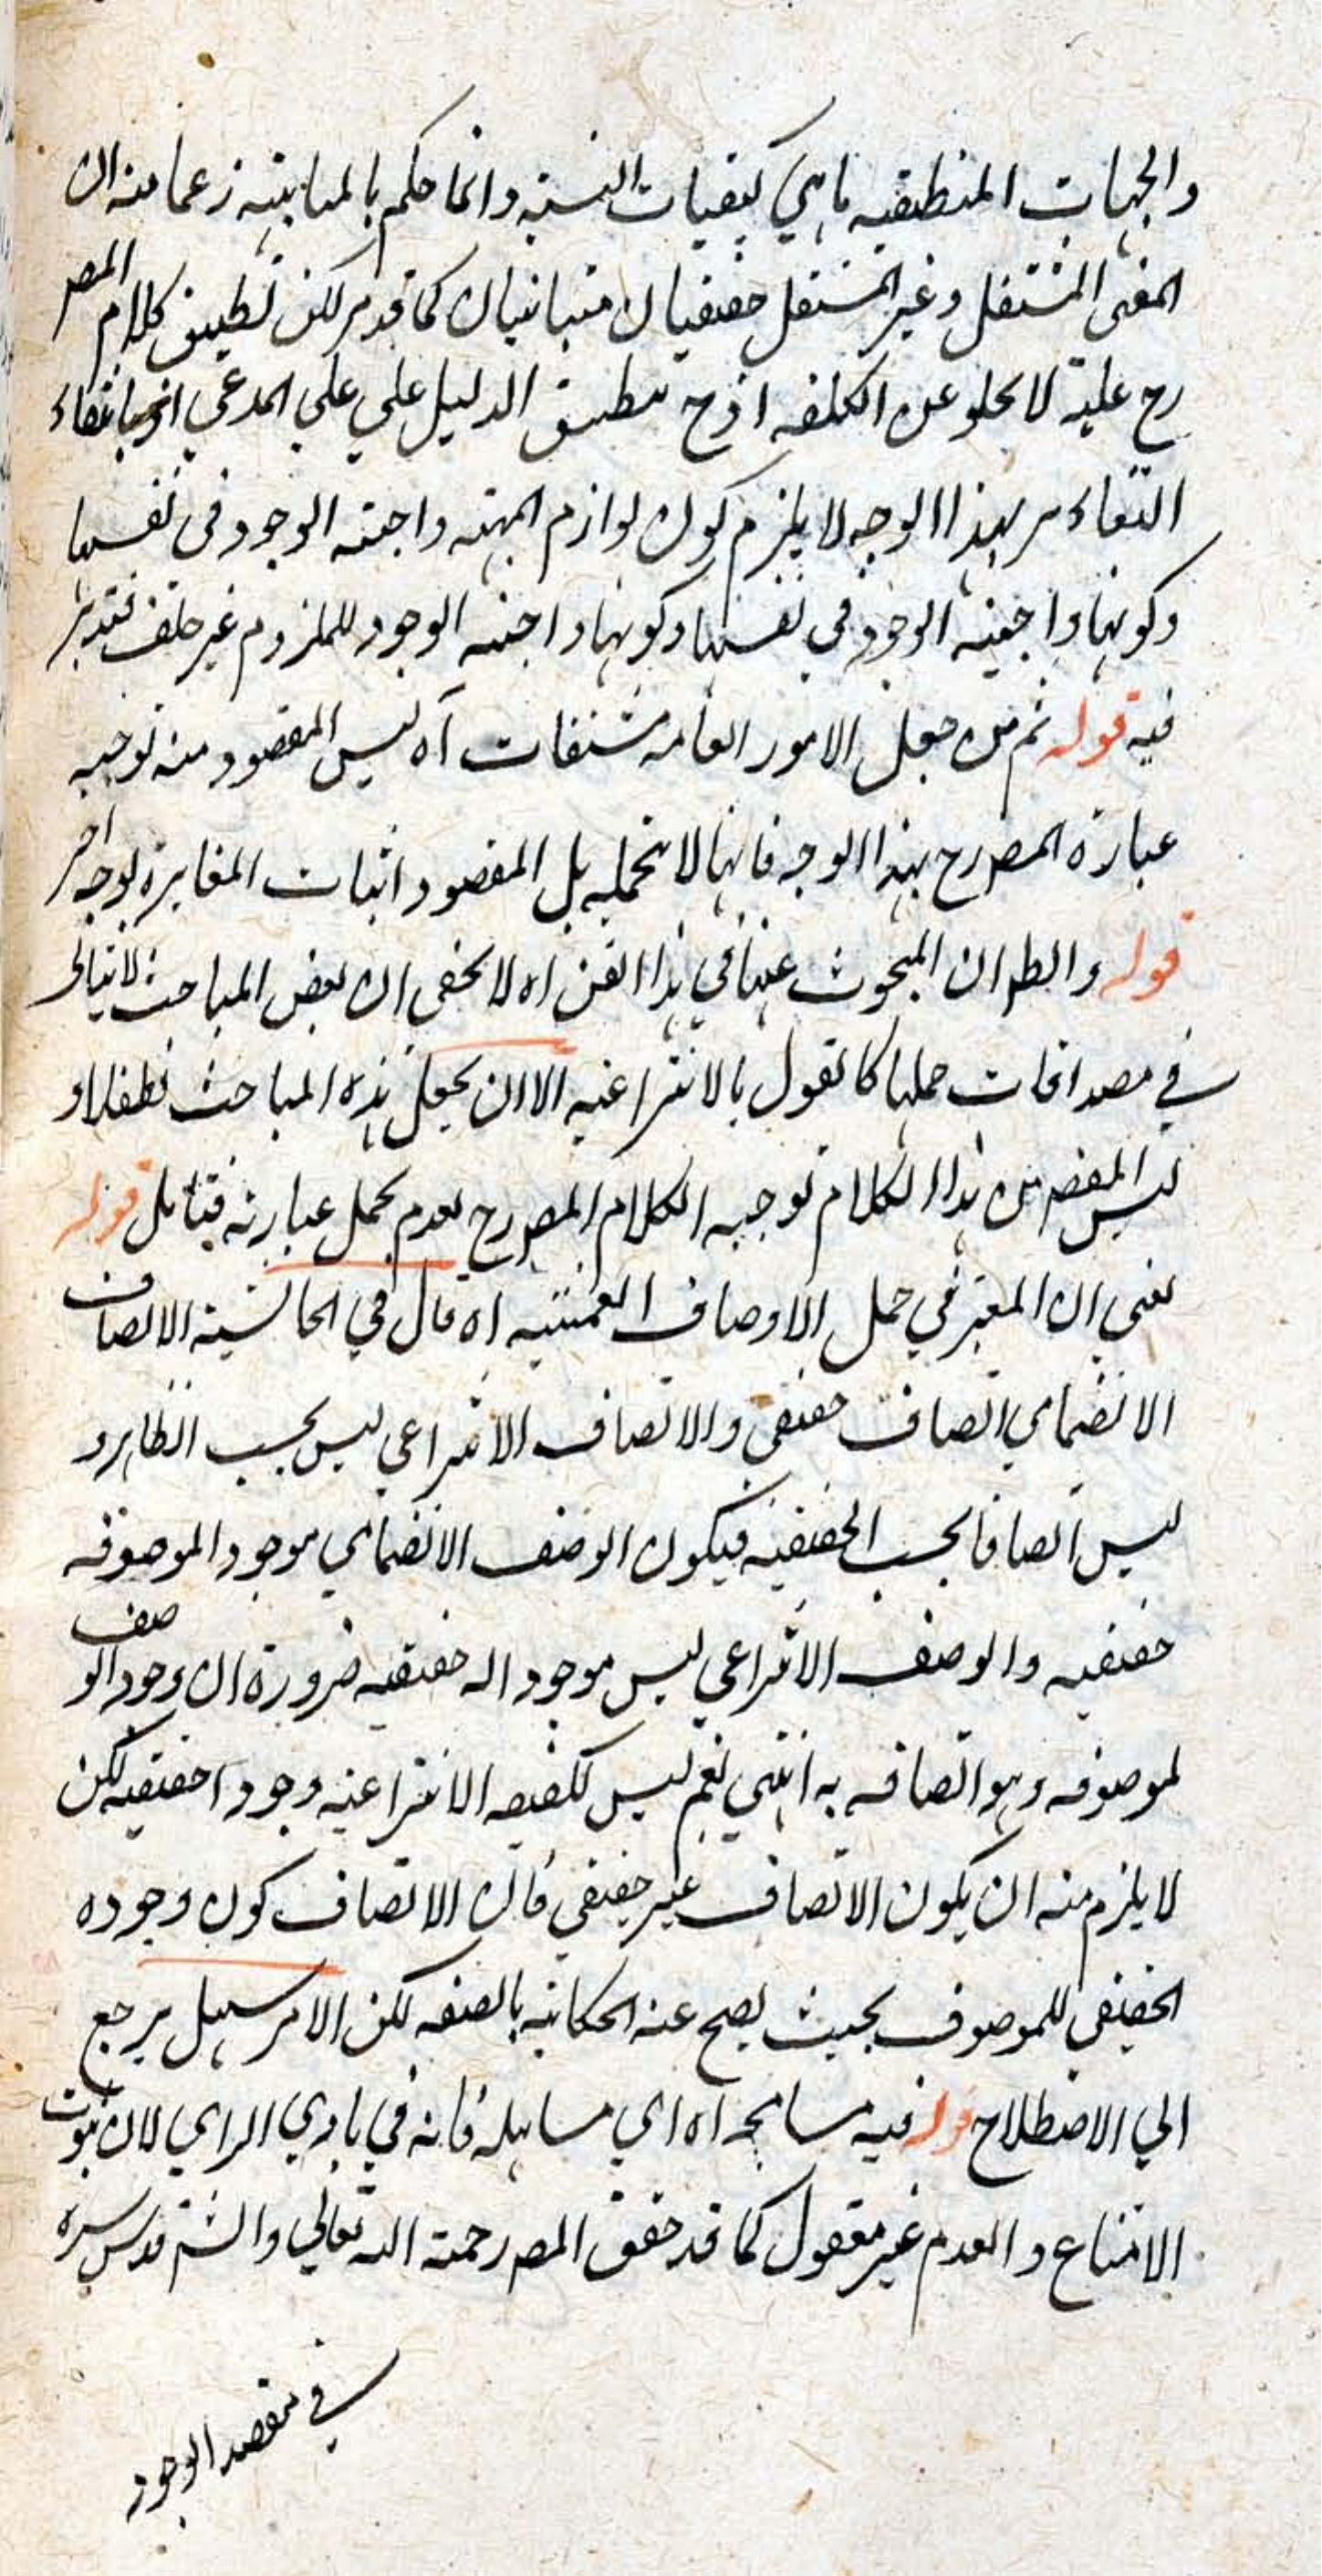 والجهات المنطقيه ماهي كيفيات النسبة وانما حكم بالمباينه زعما منه ان
المعنى المستقل وغير المستقل حقيقيان متباينان كما قد مر لكن تطبيق كلام المص
رح عليه لا يخلو عن الكلفه اذ ح تطبيق الدليل على على المدعى
بهذا الوجه لا يلزم كون لوازم المهيه واجبه الوجود في نفسها
وكونها واجبه الوجود في نفسها وكونها واجبه الوجود للملزوم غير خلف فتدبر
فيه قوله ثم من جعل الامور العامه مشتقات آه ليس المقصود منه توجيه
عبارة المص رح بهذا الوجه فانها لا تحمله بل المقصود اثبات المغايرة بوجه اخر
قوله والظ ان المبحوث عنها في هذا الفن اه لا يخفى ان بعض المباحث لا يتاتى
في مصداقات حملها كالقول بالانتزاعيه الا ان يجعل هذه المباحث تطفلا و
ليس المقص من هذا الكلام توجيه الكلام المص رح لعدم تحمل عبارته فتامل قوله
يعني ان المعتبر في حمل الاوصاف العينيه اه قال في الحاشية الاتصاف
الانضمامي اتصاف حقيقي والاتصاف الانتزاعي ليس بحسب الظاهر و
ليس اتصافا بحسب الحقيقيه فيكون الوصف الانضمامي موجودا لموصوفه
حقيقيه والوصف الانتزاعي ليس موجودا له حقيقيه ضرورة ان وجود الوصف
لموصوفه وهو اتصافه به انتهى نعم ليس للصفه الانتزاعيه وجودا حقيقيه لكن
لا يلزم منه ان يكون الاتصاف غير حقيقي فان الاتصاف كون وجوده
الحقيقي للموصوف بحيث يصح عنه الحكاية بالصفه لكن الامر سهل يرجع
الي الاصطلاح قوله فيه مسامحه اه اي مساهله فانه في بادي الراي لان ثبوت
الامتناع والعدم غير معقول كما قد حقق المص رحمة الله تعالي والش قدس سره
في مقصد الوجود